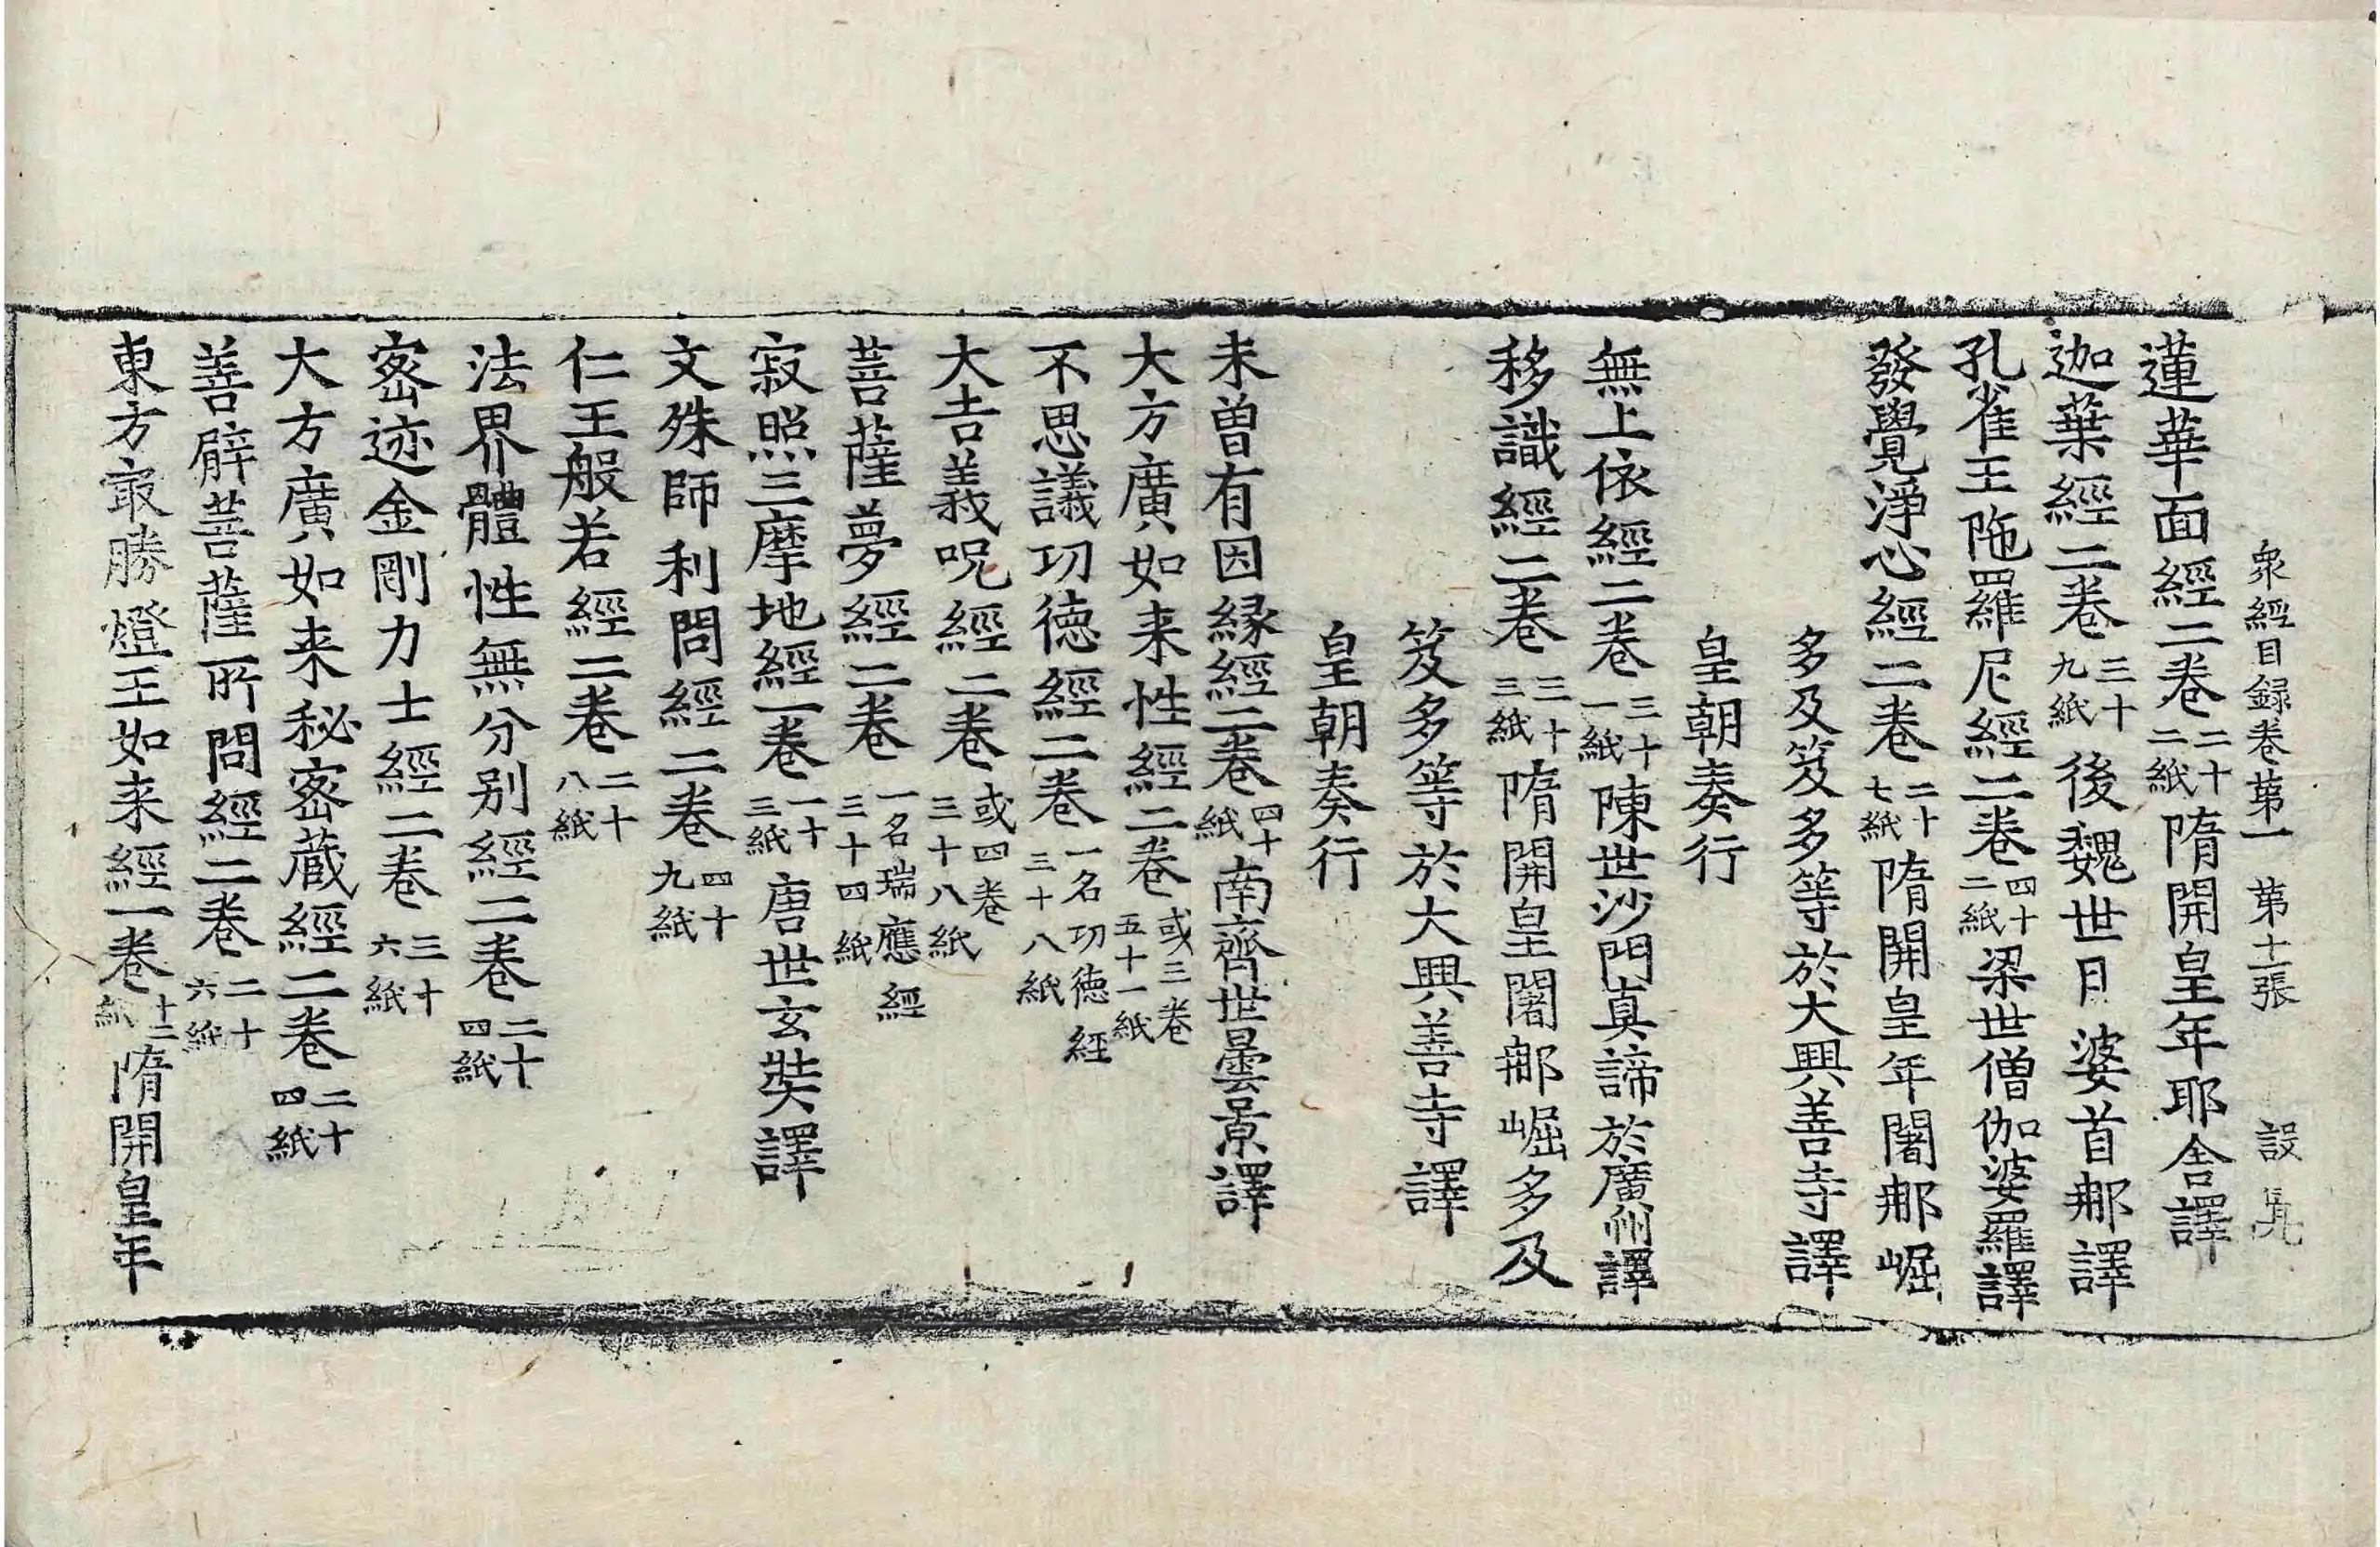 衆經目録卷第一　第十二張　設
蓮華面經二卷二十二紙隋開皇年耶舍譯
迦葉經二卷三十九紙後魏世月婆首那譯
孔雀王陁羅尼經二卷四十二紙梁世僧伽婆羅譯
發覺淨心經二卷二十七紙隋開皇年闍那崛
多及笈多等於大興善寺譯
皇朝奏行
無上依經二卷三十一紙陳世沙門真諦於廣州譯
移識經二卷三十三紙隋開皇闍那崛多及
笈多等於大興善寺譯
皇朝奏行
未曾有因縁經二卷四十紙南齊世曇景譯
大方廣如来性經二卷或三卷五十一紙
不思議功德經二卷一名功德經三十八紙
大吉義呪經二卷或四卷三十八紙
菩薩夢經二卷一名瑞應經三十四紙
寂照三摩地經一卷一十三紙唐世玄奘譯
文殊師利問經二卷四十九紙
仁王般若經二卷二十八紙
法界體性無分别經二卷二十四紙
密迹金剛力士經二卷三十六紙
大方廣如来秘密蔵經二卷二十四紙
善臂菩薩所問經二卷二十六紙
東方㝡勝燈王如来經一卷十二紙隋開皇年